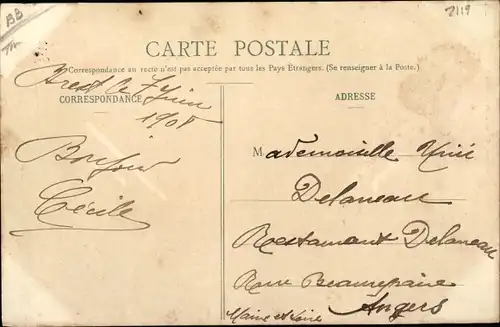 BB
2119
CARTE POSTALE
Correspondance au recto n'est pas acceptée par tous les Pays Étrangers. (Se renseigner à la Poste.)
CORRESPONDANCE
ADRESSE
Brest le 7 Juin
1908
Bonjour
Cécile
Mademoiselle
Delaneau
Restaurant Delaneau
Rue Beaurepaire
Angers
Maine et Loire